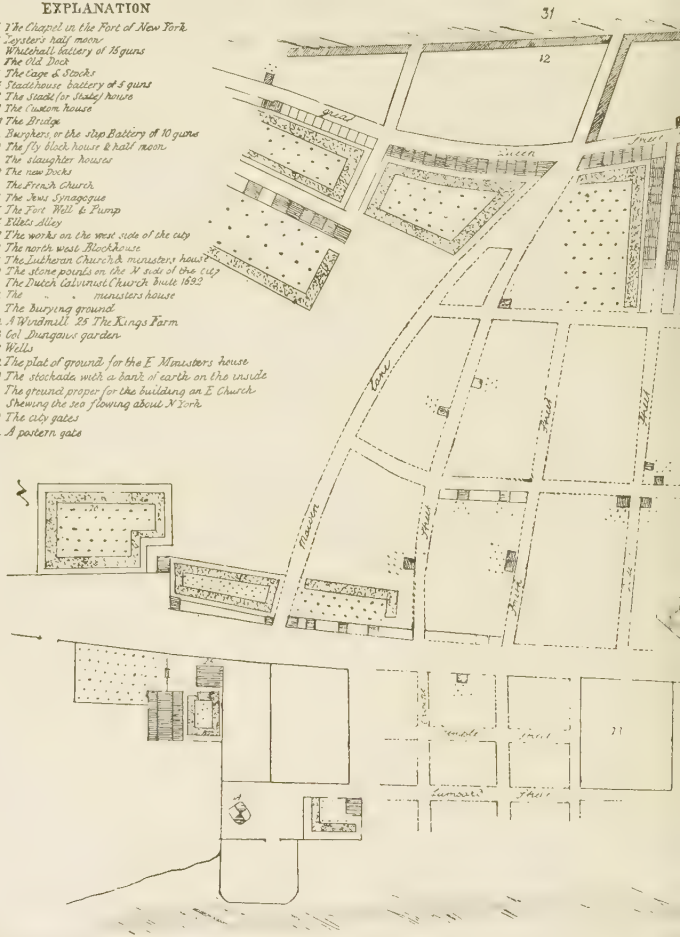 EXPLANATION
The Chapel in the Fort of New York
Leyster's half moon
Whitehall battery of 15 guns
The Old Dock
The Cage & Stocks
Stadthouse battery of 5 guns
The Stadt (or State) house
The Custom house
The Bridge
Burghers, or the slip Battery of 10 guns
The fly block house & half moon
The slaughter houses
The new Docks
The French Church
The Jews Synagogue
The Fort Well & Pump
Ellets Alley
The works on the west side of the city
The north west Blockhouse
The Lutheran Church & ministers house
The stone points on the N side of the city
The Dutch Calvinist Church built 1692
The " " ministers house
The burying ground
A Windmill 25 The Kings Farm
Col Dungans garden
Wells
The plat of ground for the E Ministers house
The stockade, with a bank of earth on the inside
The ground proper for the building an E Church
Shewing the sea flowing about N York
The city gates
A postern gate
31
12
great
queen
street
lane
street
street
Maiden
street
street
street